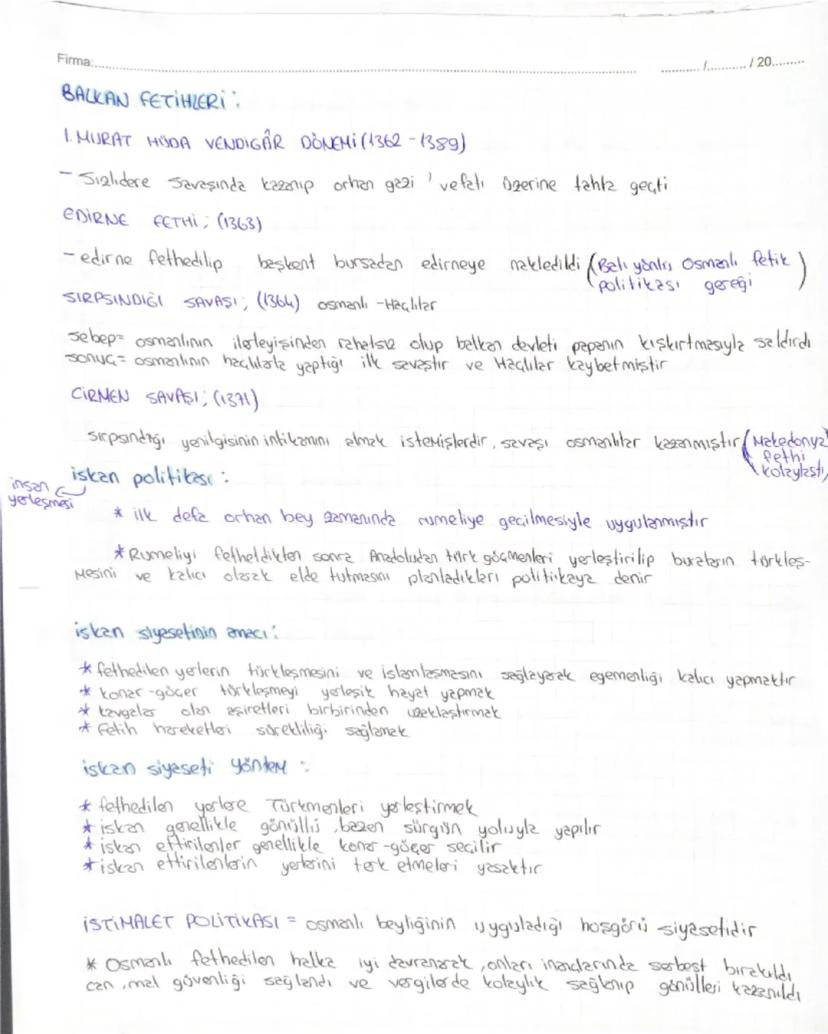 Firma:............ ........../........../ 20.........
BALKAN FETİHLERİ:
I. MURAT HÜDA VENDIGÂR DÖNEMİ (1362 - 1389)
- Sızlıdere savaşında kazanıp orhan gazi 'vefatı üzerine tahta geçti
EDİRNE FETHİ; (1363)
- edirne fethedilip başkent bursadan edirneye nakledildi (Batı yönlü Osmanlı fetih
politikası gereği)
SIRPSINDIĞI SAVAŞI; (1364) osmanlı -Haçlılar
sebep= osmanlının ilerleyişinden rahatsız olup balkan devleti papanın kışkırtmasıyla saldırdı
sonuç= osmanlının haçlılarla yaptığı ilk savaştır ve Haçlılar kaybetmiştir
ÇİRMEN SAVAŞI; (1371)
sırpsındığı yenilgisinin intikamını almak istemişlerdir, savaşı osmanlılar kazanmıştır (Makedonya
fethi
kolaylaştı)
iskan politikası:
insan
yerleşmesi
* ilk defa orhan bey zamanında rumeliye geçilmesiyle uygulanmıştır
* Rumeliyi fethettikten sonra Anadoludan türk göçmenleri yerleştirilip buraların türkleş-
mesini ve kalıcı olarak elde tutmasını planladıkları politikaya denir
iskan siyasetinin amacı:
* fethedilen yerlerin türkleşmesini ve islamlaşmasını sağlayarak egemenliği kalıcı yapmaktır
* konar-göçer türkleşmeyi yerleşik hayat yapmak
* kavgalar olan aşiretleri birbirinden uzaklaştırmak
* fetih hareketleri sürekliliği sağlamak
iskan siyaseti yöntem:
* fethedilen yerlere Türkmenleri yerleştirmek
* iskan genellikle gönüllü, bazen sürgün yoluyla yapılır
* iskan ettirilenler genellikle konar-göçer seçilir
* iskan ettirilenlerin yerlerini terk etmeleri yasaktır
İSTİMALET POLİTİKASI = osmanlı beyliğinin uyguladığı hoşgörü siyasetidir
* Osmanlı fethedilen halka iyi davranarak, onları inançlarında serbest bırakıldı,
can, mal güvenliği sağlandı ve vergilerde kolaylık sağlanıp gönülleri kazanıldı